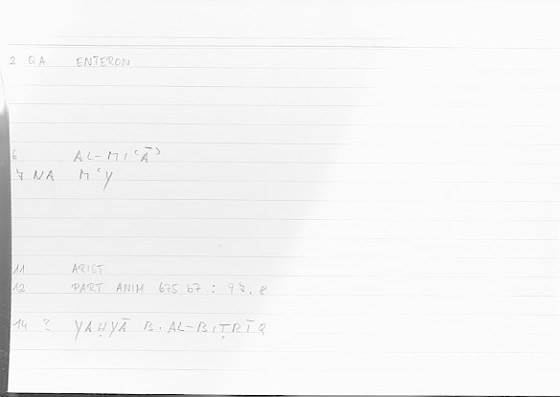 2 GA ENTERON
6 AL-MIʿĀʾ
7 NA MʿY
11 ARIST
12 PART ANIM 675 b7 : 97.8
14 ? YAḤYĀ B. AL-BIṬRĪQ